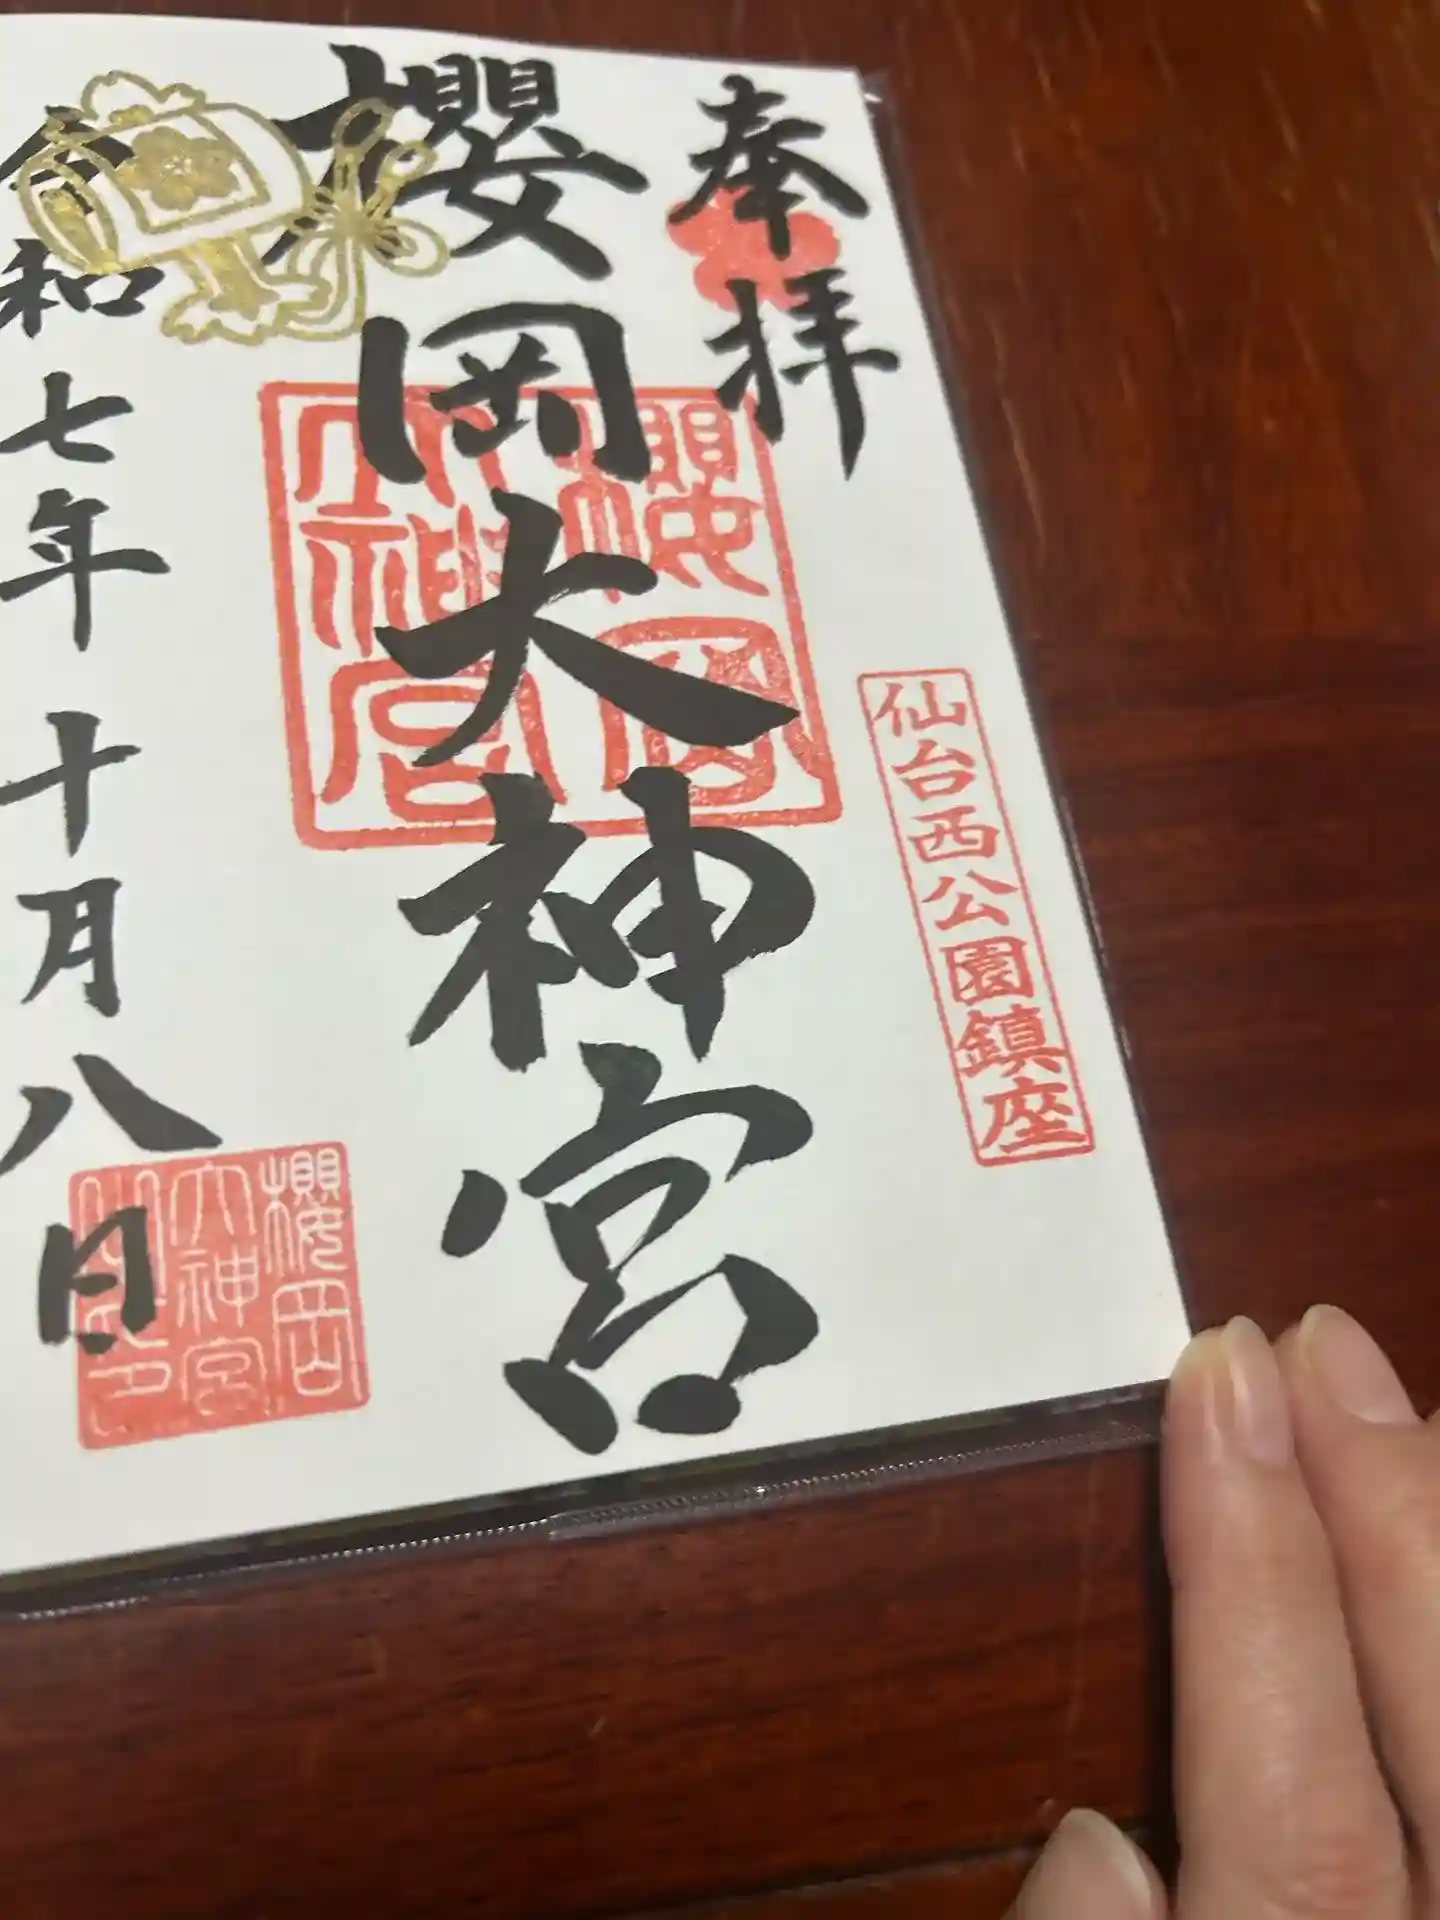 奉拝
仙台西公園鎮座
櫻岡大神宮
櫻岡
大神宮
令和七年十月八日
櫻岡
大神宮